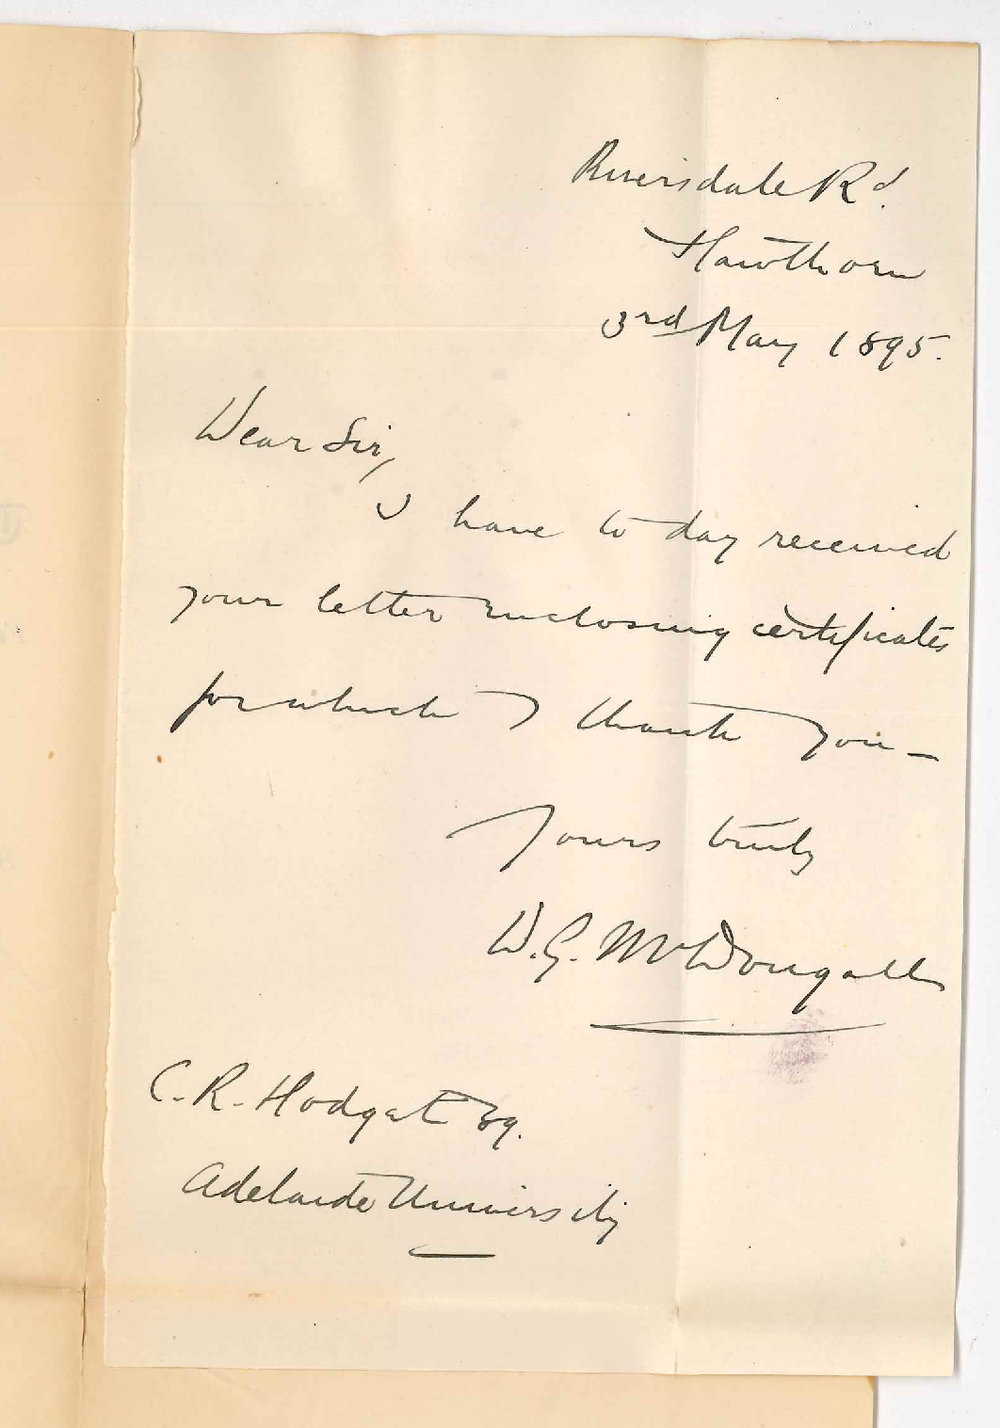 Riversdale Rd.
Hawthorn
3rd May 1895.
Dear Sir,
I have to day received
your letter enclosing certificates
for which I thank you —
Yours truly
D. G. McDougall
C. R. Hodge Esq.
Adelaide University